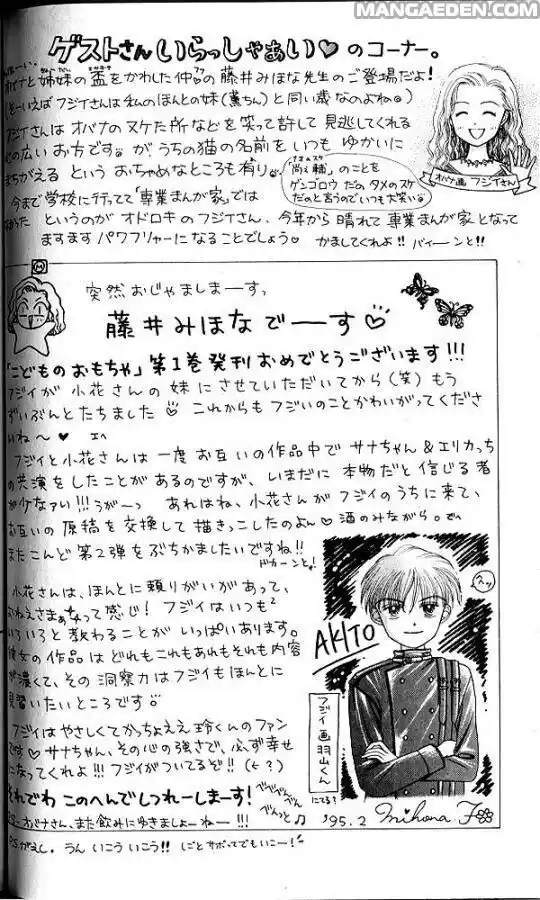 MANGAEDEN.COM
ゲストさんいらっしゃぁい♡のコーナー。
オバナと姉妹の盃をかわした仲の藤井みほな先生のご登場だよ!
フジイさんは私のほんとの妹(薫ちん)と同い歳なのよね
フジイさんは オバナのヌケた所などを笑って許して見逃してくれる
広い お方です が うちの猫の名前を いつも ゆかいに
まちがえる という おちゃめなところも有り
「尚之輔」のことを
ゲンゴロウ だの タメのスケ
だのと言うのでいつも大笑い
オバナ画 フジイさん
今まで学校に行ってて「専業まんが家」では
なかった というのが オドロキのフジイさん、今年から晴れて専業まんが家となって
ますます パワフリャーになることでしょう かましてくれよ!! バィーンと!!
突然おじゃましまーすっ
藤井みほなでーーす♡
「こどものおもちゃ」第1巻発刊おめでとうございます!!!
フジイが 小花さんの妹にさせていただいてから(笑)もう
ずいぶんとたちました♡ これからも フジイのことかわいがってくださ
いね〜♥
フジイと小花さんは 一度 お互いの作品中で サナちゃん&エリカっち
の共演をしたことがあるのですが、いまだに 本物だと信じる者
が少なァい!!!うがーっ あれはね、小花さんが フジイのうちに来て、
お互いの原稿を交換して描きっこしたのよん♡酒のみながら。
またこんど第2弾をぶちかましたいですね!!
ドカーンと!
小花さんは、ほんとに頼りがいがあって、
おねえさまぁって感じ! フジイはいつも
いろいろと教わることがいっぱいあります。
彼女の作品はどれもこれもあれもそれも内容
が濃くて、その洞察力はフジイもほんとに
見習いたいところです
フジイはやさしくてかっちょええ玲くんのファン
です♡サナちゃん、その心の強さで、必ず幸せ
になってくれよ!!! フジイがついてるぞ!!(←?)
それでわ このへんでしつれーしまーす!
オバナさん、また飲みにゆきましょーねー!!!
AKITO
フジイ画 羽山くん
にてる?
'95.2 Mihona F
うん いこう いこう!! しごと サボってでもいこー!